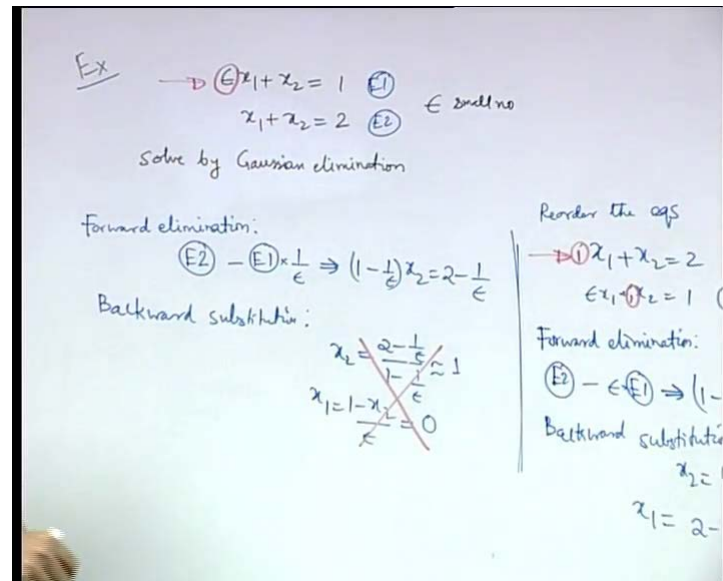 Ex
→ ϵx₁ + x₂ = 1 (E1)
x₁ + x₂ = 2 (E2)
ϵ small no
Solve by Gaussian elimination
Forward elimination:
(E2) - (E1) × 1/ϵ ⇒ (1 - 1/ϵ)x₂ = 2 - 1/ϵ
Backward substitution:
x₂ = (2 - 1/ϵ)/(1 - 1/ϵ) ≈ 1
x₁ = (1 - x₂)/ϵ = 0
Reorder the eqs
→ ①x₁ + x₂ = 2
ϵx₁ + ①x₂ = 1 (
Forward elimination:
(E2) - ϵ(E1) ⇒ (1-
Backward substitutio
x₂ =
x₁ = 2-